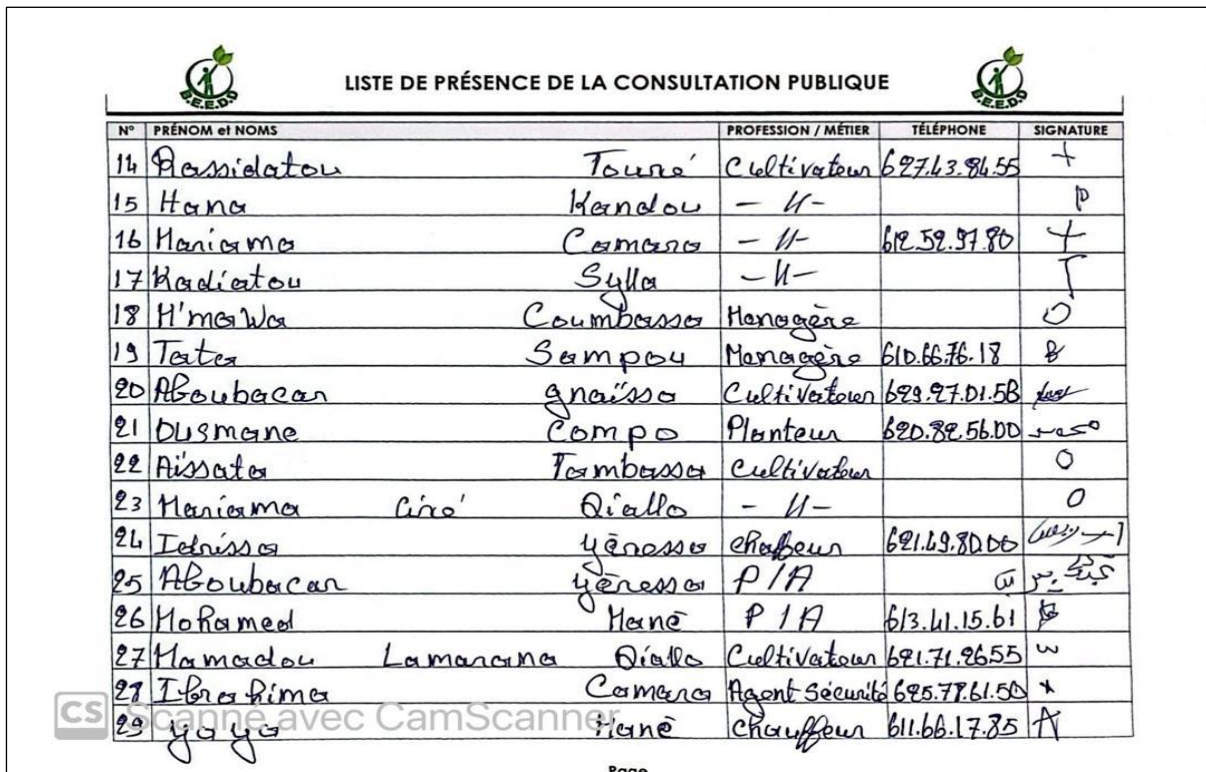 B.E.E.D.D
LISTE DE PRÉSENCE DE LA CONSULTATION PUBLIQUE
B.E.E.D.D
N° PRÉNOM et NOMS PROFESSION / MÉTIER TÉLÉPHONE SIGNATURE
14 Rassidatou Touré Cultivateur 627.43.84.55 +
15 Hana Kandou - 11 -
16 Mariama Camara - 11 - 612.52.97.80 +
17 Kadiatou Sylla - 11 -
18 M'mawa Coumbassa Menagère O
19 Tata Sampou Menagère 610.66.76.18
20 Aboubacar gnaïssa Cultivateur 629.27.01.58
21 Ousmane Compo Planteur 620.82.56.00
22 Aïssata Tambassa Cultivateur O
23 Mariama Ciré Diallo - 11 - O
24 Idrissa yēressa chaffeur 621.49.80.00
25 Aboubacar yēressa P/A
26 Mohamed Mané P/A 613.41.15.61
27 Mamadou Lamarana Diallo Cultivateur 621.71.2655
28 Ibrahima Camara Agent Sécurité 625.78.61.50
29 yaya Mané Chauffeur 611.66.17.85
CS Scanné avec CamScanner
Page